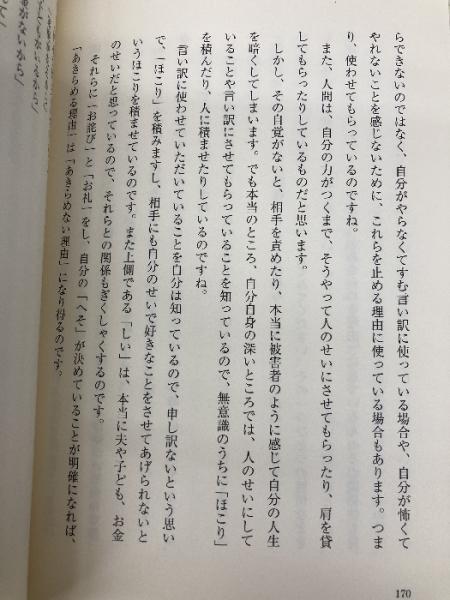 らできないのではなく、自分がやらなくてすむ言い訳に使っている場合や、自分が怖くて
やれないことを感じないために、これらを止める理由に使っている場合もあります。つま
り、使わせてもらっているのですね。
また、人間は、自分の力がつくまで、そうやって人のせいにさせてもらったり、肩を貸
してもらったりしているものだと思います。
しかし、その自覚がないと、相手を責めたり、本当に被害者のように感じて自分の人生
を暗くしてしまいます。でも本当のところ、自分自身の深いところでは、人のせいにして
いることや言い訳にさせてもらっていることを知っているので、無意識のうちに「ほこり」
を積んだり、人に積ませたりしているのですね。
言い訳に使わせていただいていることを自分は知っているので、申し訳ないという思い
で、「ほこり」を積みますし、相手にも自分のせいで好きなことをさせてあげられないと
いうほこりを積ませているのです。また上側である「しい」は、本当に夫や子ども、お金
のせいだと思っているので、それらとの関係もぎくしゃくするのです。
それらに「お詫び」と「お礼」をし、自分の「へそ」が決めていることが明確になれば、
「あきらめる理由」は「あきらめない理由」になり得るのです。
170